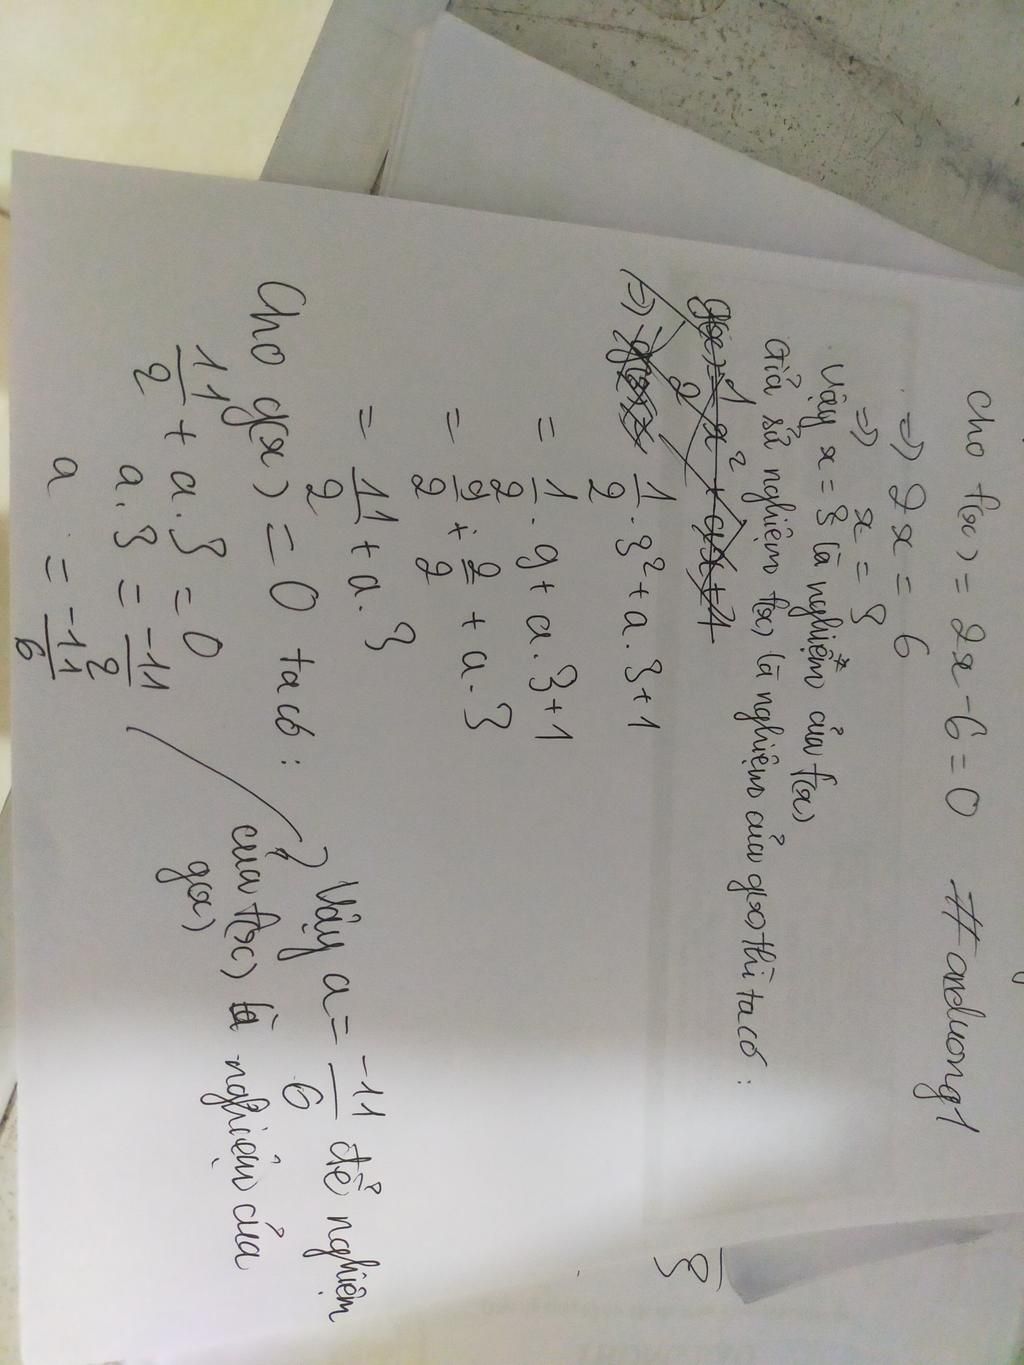 Cho f(x) = 2x - 6 = 0 #anduong1
=> 2x = 6
=> x = 3
Vậy x = 3 là nghiệm* của f(x)
Giả sử nghiệm f(x) là nghiệm của g(x) thì ta có:
g(x) = 1/2 x² + ax + 1
=> 1/2 . 3² + a.3 + 1
= 1/2 . 9 + a.3 + 1
= 9/2 + 2/2 + a.3
= 11/2 + a.3
Cho g(x) = 0 ta có:
11/2 + a.3 = 0
a.3 = -11/2
a = -11/6
Vậy a = -11/6 để nghiệm
của f(x) là nghiệm của
g(x)
3